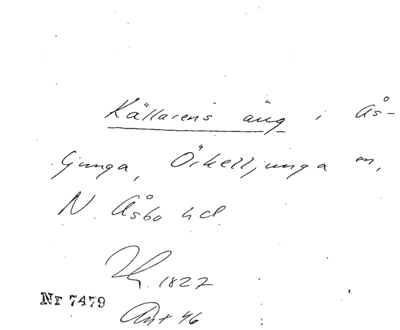 Källarens äng i Ås-
ljunga, Örkelljunga sn,
N. Åsbo hd.
1827
Nr 7479
Akt 46